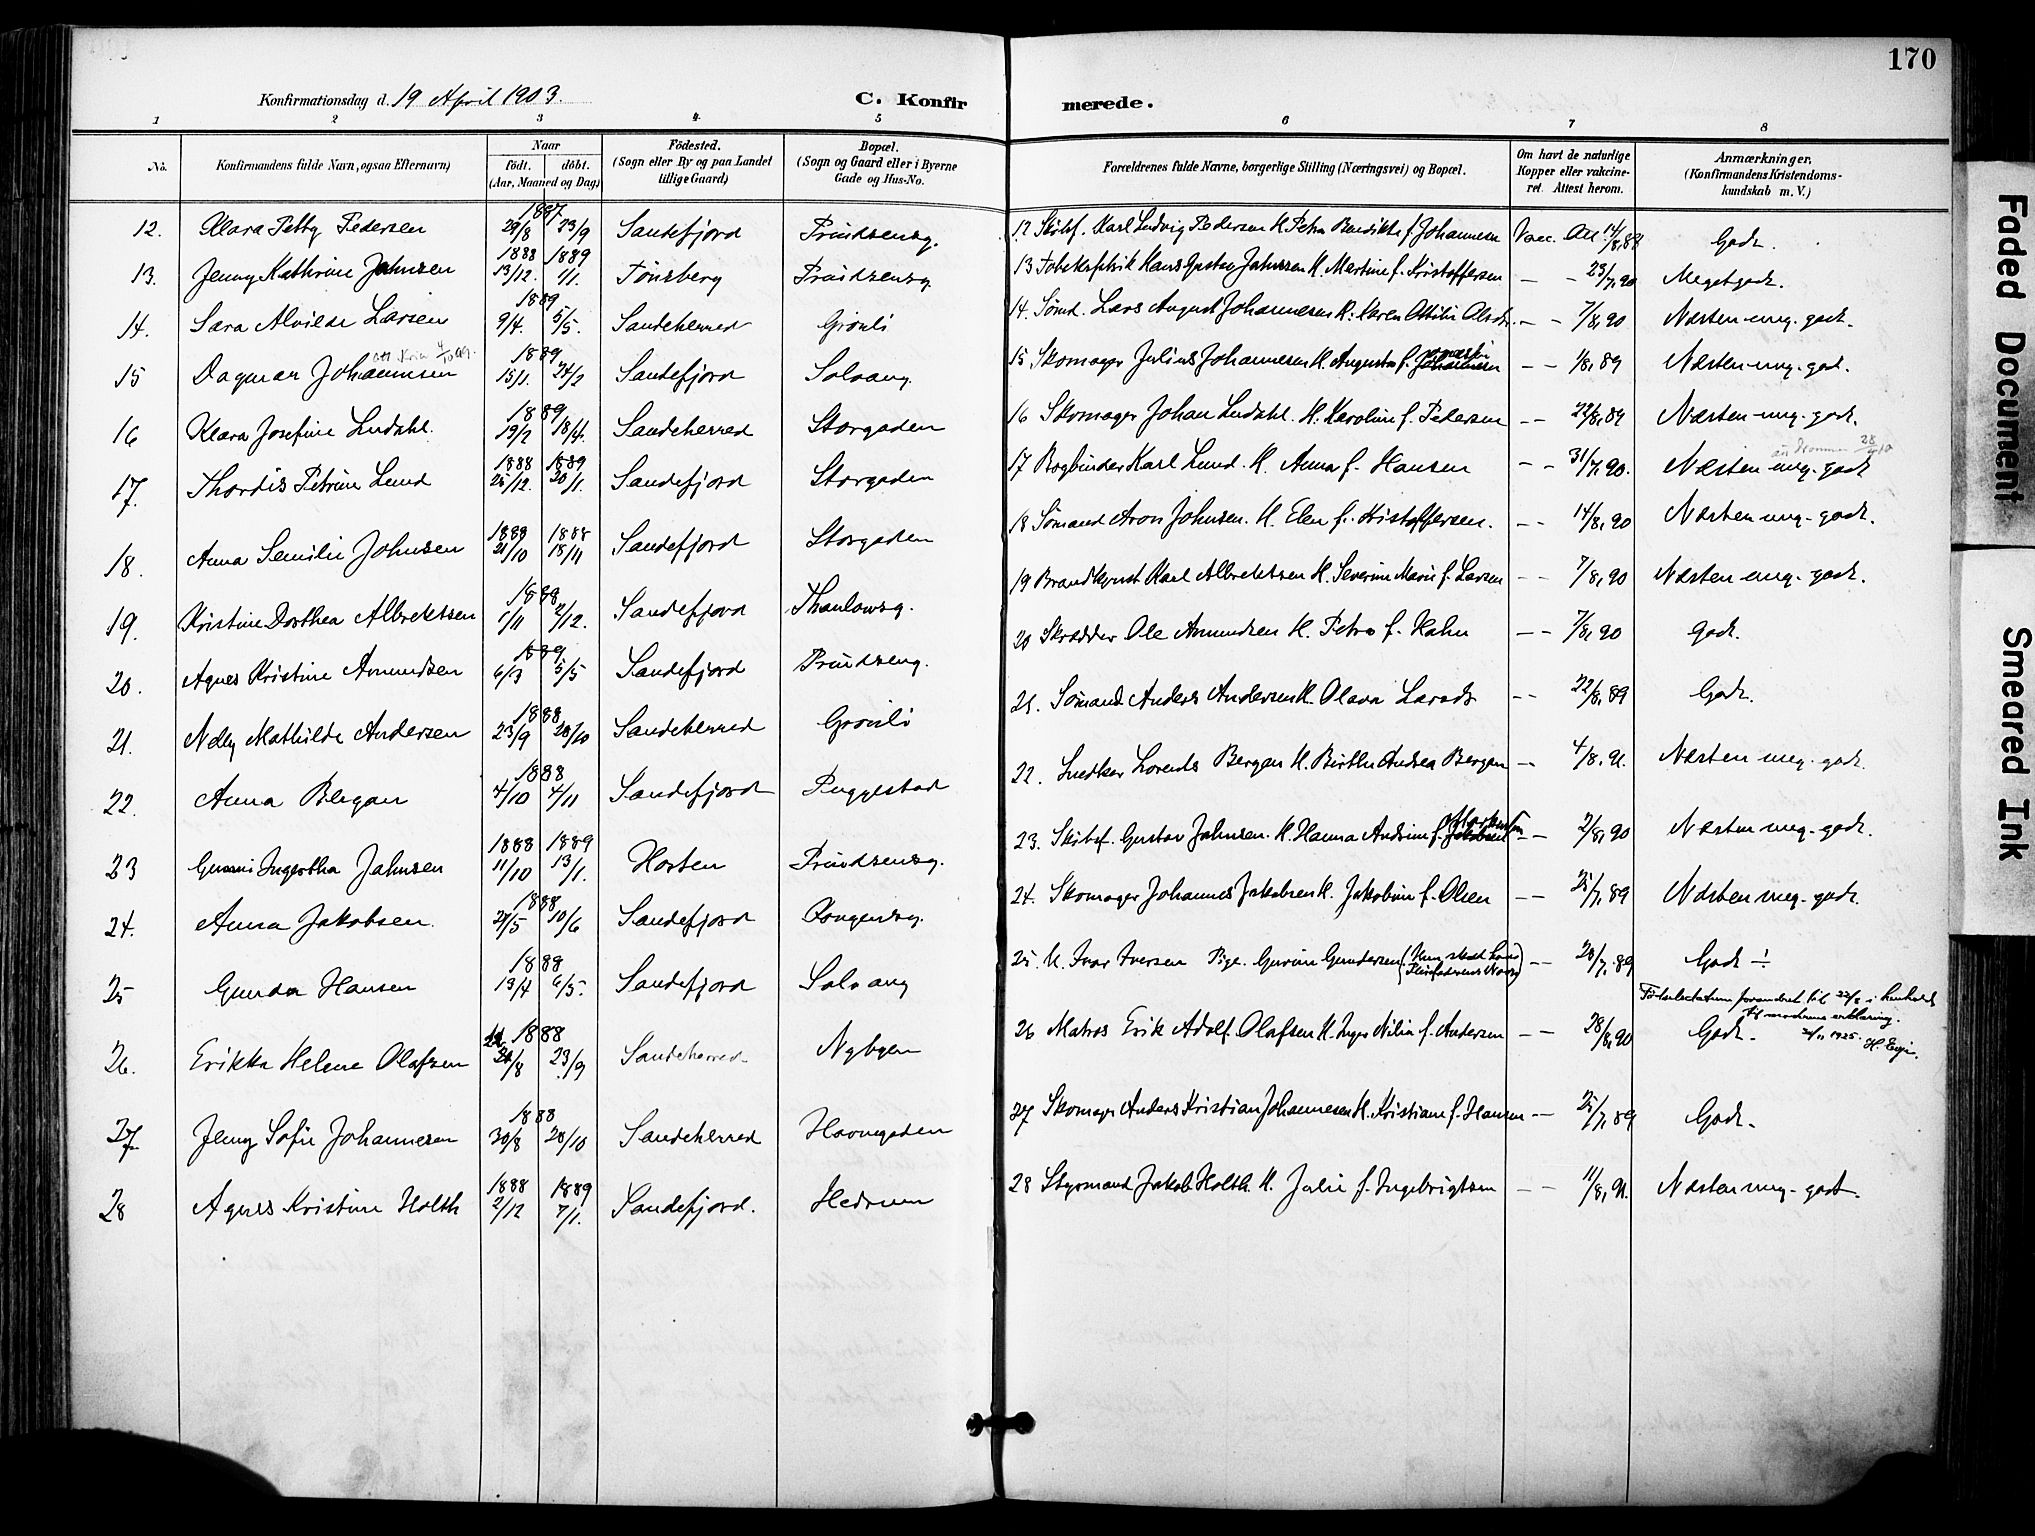 170
Konfirmationsdag d. 19 April 1903.
C. Konfirmerede.
1 2 3 4 5 6 7 8
No. Konfirmandens fulde Navn, ogsaa Efternavn) Naar født. døbt. (Aar, Maaned og Dag) Födested. (Sogn eller By og paa Landet tillige Gaard) Bopæl. (Sogn og Gaard eller i Byerne Gade og Hus-No. Forældrenes fulde Navne, borgerlige Stilling (Næringsvei) og Bopæl. Om havt de naturlige Kopper eller vakcineret. Attest herom. Anmærkninger, (Konfirmandens Kristendomskundskab m. V.)
12. Klara Petty Pedersen 1887 29/8 23/9 Sandefjord Prindsensg. 12 Skibsf. Karl Ludvig Pedersen H. Petra Bendikte f. Johannesen Vacc. Att. Godt.
13. Jenny Kathrine Jahnsen 1888 13/12. 1889 1/1. Tönsberg Prindsensg. 13 Hans Gustav Jahnsen H. Martine f. Kristoffersen – – 23/7, 90 Megetgodt.
14. Sara Alvilde Larsen 1889 9/4. 5/5. Sandeherred Grönli 14. Sömd. Lars August Johannesen H. Karen Ottilie Olsdr. – – 7/8, 90 Næsten mg. godt.
15 Dagmar Johannesen 1889 15/1. 24/2 Sandefjord Solvang. 15 Skomager Julius Johannesen H. Augusta f. – – 1/8, 89 Næsten mg. godt.
16 Klara Josefine Lindahl. 1889 19/2 18/4. Sandeherred Storgaden 16 Skomager Johan Lindahl. H. Karoline f. Pedersen – – 22/8, 89 Næsten mg. godt.
17. Thordis Petrine Lund 1888 25/12. 1889 20/1. Sandefjord Storgaden 17 Bogbinder Karl Lund. H. Anna f. Hansen – – 31/7, 90. Næsten mg. godt
18. Anna Semilie Johnsen 1888 21/10 1888 18/11 Sandefjord Storgaden 18 Sömand Aron Johnsen. H. Elen f. Kristoffersen. – – 14/8, 90 Næsten mg. godt.
19. Kristine Dorthea Albrektsen 1888 1/11 2/12. Sandefjord Thaulowsg. 19 Brandkonst Karl Albrektsen H. Severine Marie f. Larsen – – 7/8, 90 Næsten mg. godt.
20. Agnes Kristine Amundsen 1889 6/3 5/5 Sandefjord Prindseng. 20 Skrædder Ole Amundsen H. Petra f. Hahn – – 7/8, 90 Godt.
21. Nelly Mathilde Andersen 1888 23/9 28/10 Sandeherred Grönli 21. Sömand Anders Andersen H. Olava Larsdr – – 22/8, 89 Godt.
22. Anna Bergan 1888 4/10 4/11 Sandefjord Puggestad 22. Snedker Lorents Bergan H. Birthe Andrea Bergan – – 4/8, 91. Næsten mg. godt.
23 Gunni Ingertha Jahnsen 1888 11/10 1889 13/1. Horten Prindsensg. 23. Skibsf. Gustav Jahnsen. H. Hanna Andrine f. – – 2/8, 90 Næsten mg. godt.
24. Anna Jakobsen. 1888 27/5 10/6 Sandefjord Kongensg. 24. Skomager Johannes Jakobsen H. Jakobine f. Olsen – – 25/7, 89 Næsten mg. godt.
25 Gunda Hansen 1888 13/4 6/5. Sandefjord Solvang 25. U. Ivar Iversen Pige. Gurine Gundersen – – 28/7, 89 Godt –!
26. Erikka Helene Olafsen 1888 23/9 Sandeherred Nybyen 26 Matros Erik Adolf. Olafsen H. Inger Nilia f. Andersen – – 28/8, 90 Godt.
Födselsdatum forandret til 22/8 i henhold til moderens erklæring. 1925.
27 Jenny Sofie Johannesen 1888 30/8 28/10 Sandeherred Havnegaden 27 Skomager Anders Kristian Johannesen H. Kristiane f. Hansen – – 25/7, 89 Godt.
28 Agnes Kristine Holth 1888 2/12 1889 7/1. Sandefjord. Hedrum 28 Styrmand Jakob Holth. H. Julie f. Ingebrigtsen – – 11/8, 91. Næsten mg. godt.
Faded Document
Smeared Ink